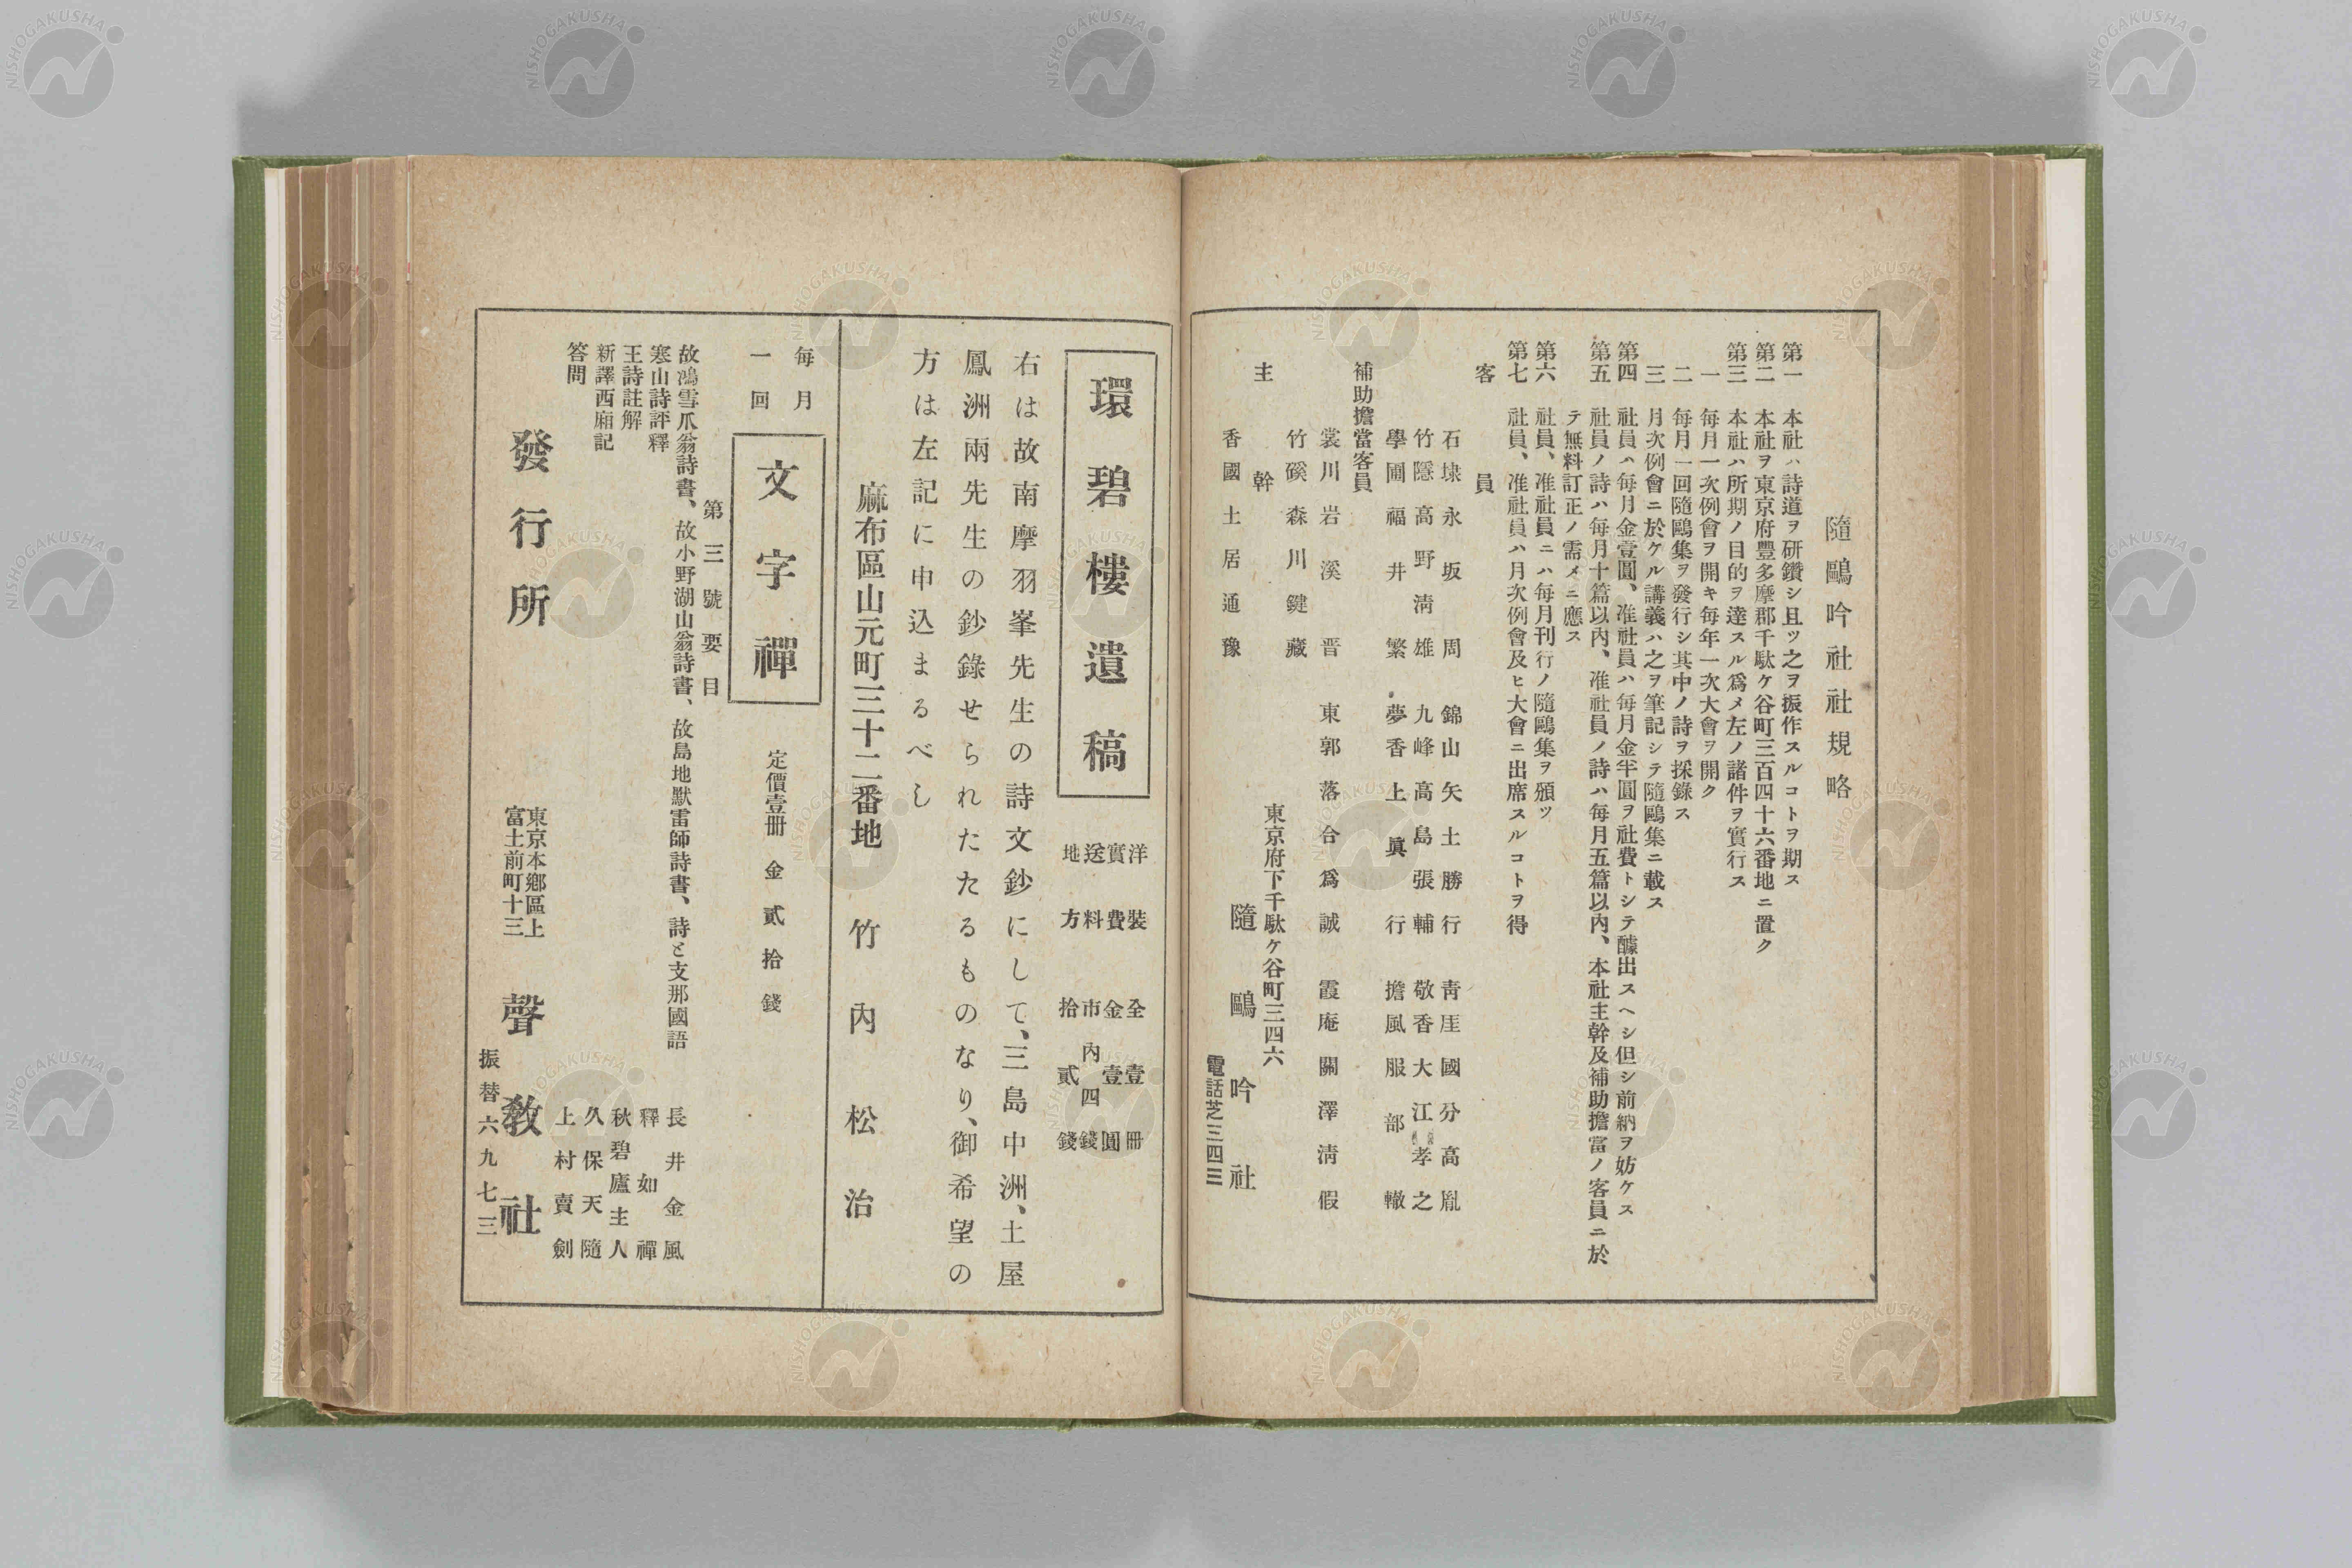 隨鷗吟社社規略
第一 本社ハ詩道ヲ研鑽シ且ツ之ヲ振作スルコトヲ期ス
第二 本社ヲ東京府豐多摩郡千駄ケ谷町三百四十六番地ニ置ク
第三 本社ハ所期ノ目的ヲ達スル爲メ左ノ諸件ヲ實行ス
一 每月一次例會ヲ開キ每年一次大會ヲ開ク
二 每月一回隨鷗集ヲ發行シ其中ノ詩ヲ採錄ス
三 月次例會ニ於ケル講義ハ之ヲ筆記シテ隨鷗集ニ載ス
第四 社員ハ每月金壹圓、准社員ハ每月金半圓ヲ社費トシテ醵出スヘシ但シ前納ヲ妨ケス
第五 社員ノ詩ハ每月十篇以內、准社員ノ詩ハ每月五篇以內、本社主幹及補助擔當ノ客員ニ於
テ無料訂正ノ需メニ應ス
第六 社員、准社員ニハ每月刊行ノ隨鷗集ヲ頒ツ
第七 社員、准社員ハ月次例會及ヒ大會ニ出席スルコトヲ得
客員
石埭永坂周 錦山矢土勝行 靑厓國分高胤
竹隱高野淸雄 九峰高島張輔 敬香大江孝之
學圃福井繁 夢香上眞行 擔風服部轍
補助擔當客員
裳川岩溪晋 東郭落合爲誠 霞庵關澤淸假
竹磎森川鍵藏
主幹
香國土居通豫
東京府下千駄ケ谷町三四六
隨鷗吟社
電話芝三四三
環碧樓遺稿
洋裝 全壹冊
實費 金壹圓
送料 市內四錢
地方 拾貳錢
右は故南摩羽峯先生の詩文鈔にして、三島中洲、土屋
鳳洲兩先生の鈔錄せられたるものなり、御希望の
方は左記に申込まるべし
麻布區山元町三十二番地 竹內松治
每月
一回
文字禪
定價壹冊 金貳拾錢
第三號要目
故鴻雪爪翁詩書、故小野湖山翁詩書、故島地默雷師詩書、詩と支那國語 長井金風
寒山詩評釋 釋如禪
王詩註解 秋碧廬主人
新譯西廂記 久保天隨
答問 上村賣劍
發行所
東京本鄕區上
富士前町十三
聲敎社
振替六九七三
NISHOGAKUSHA